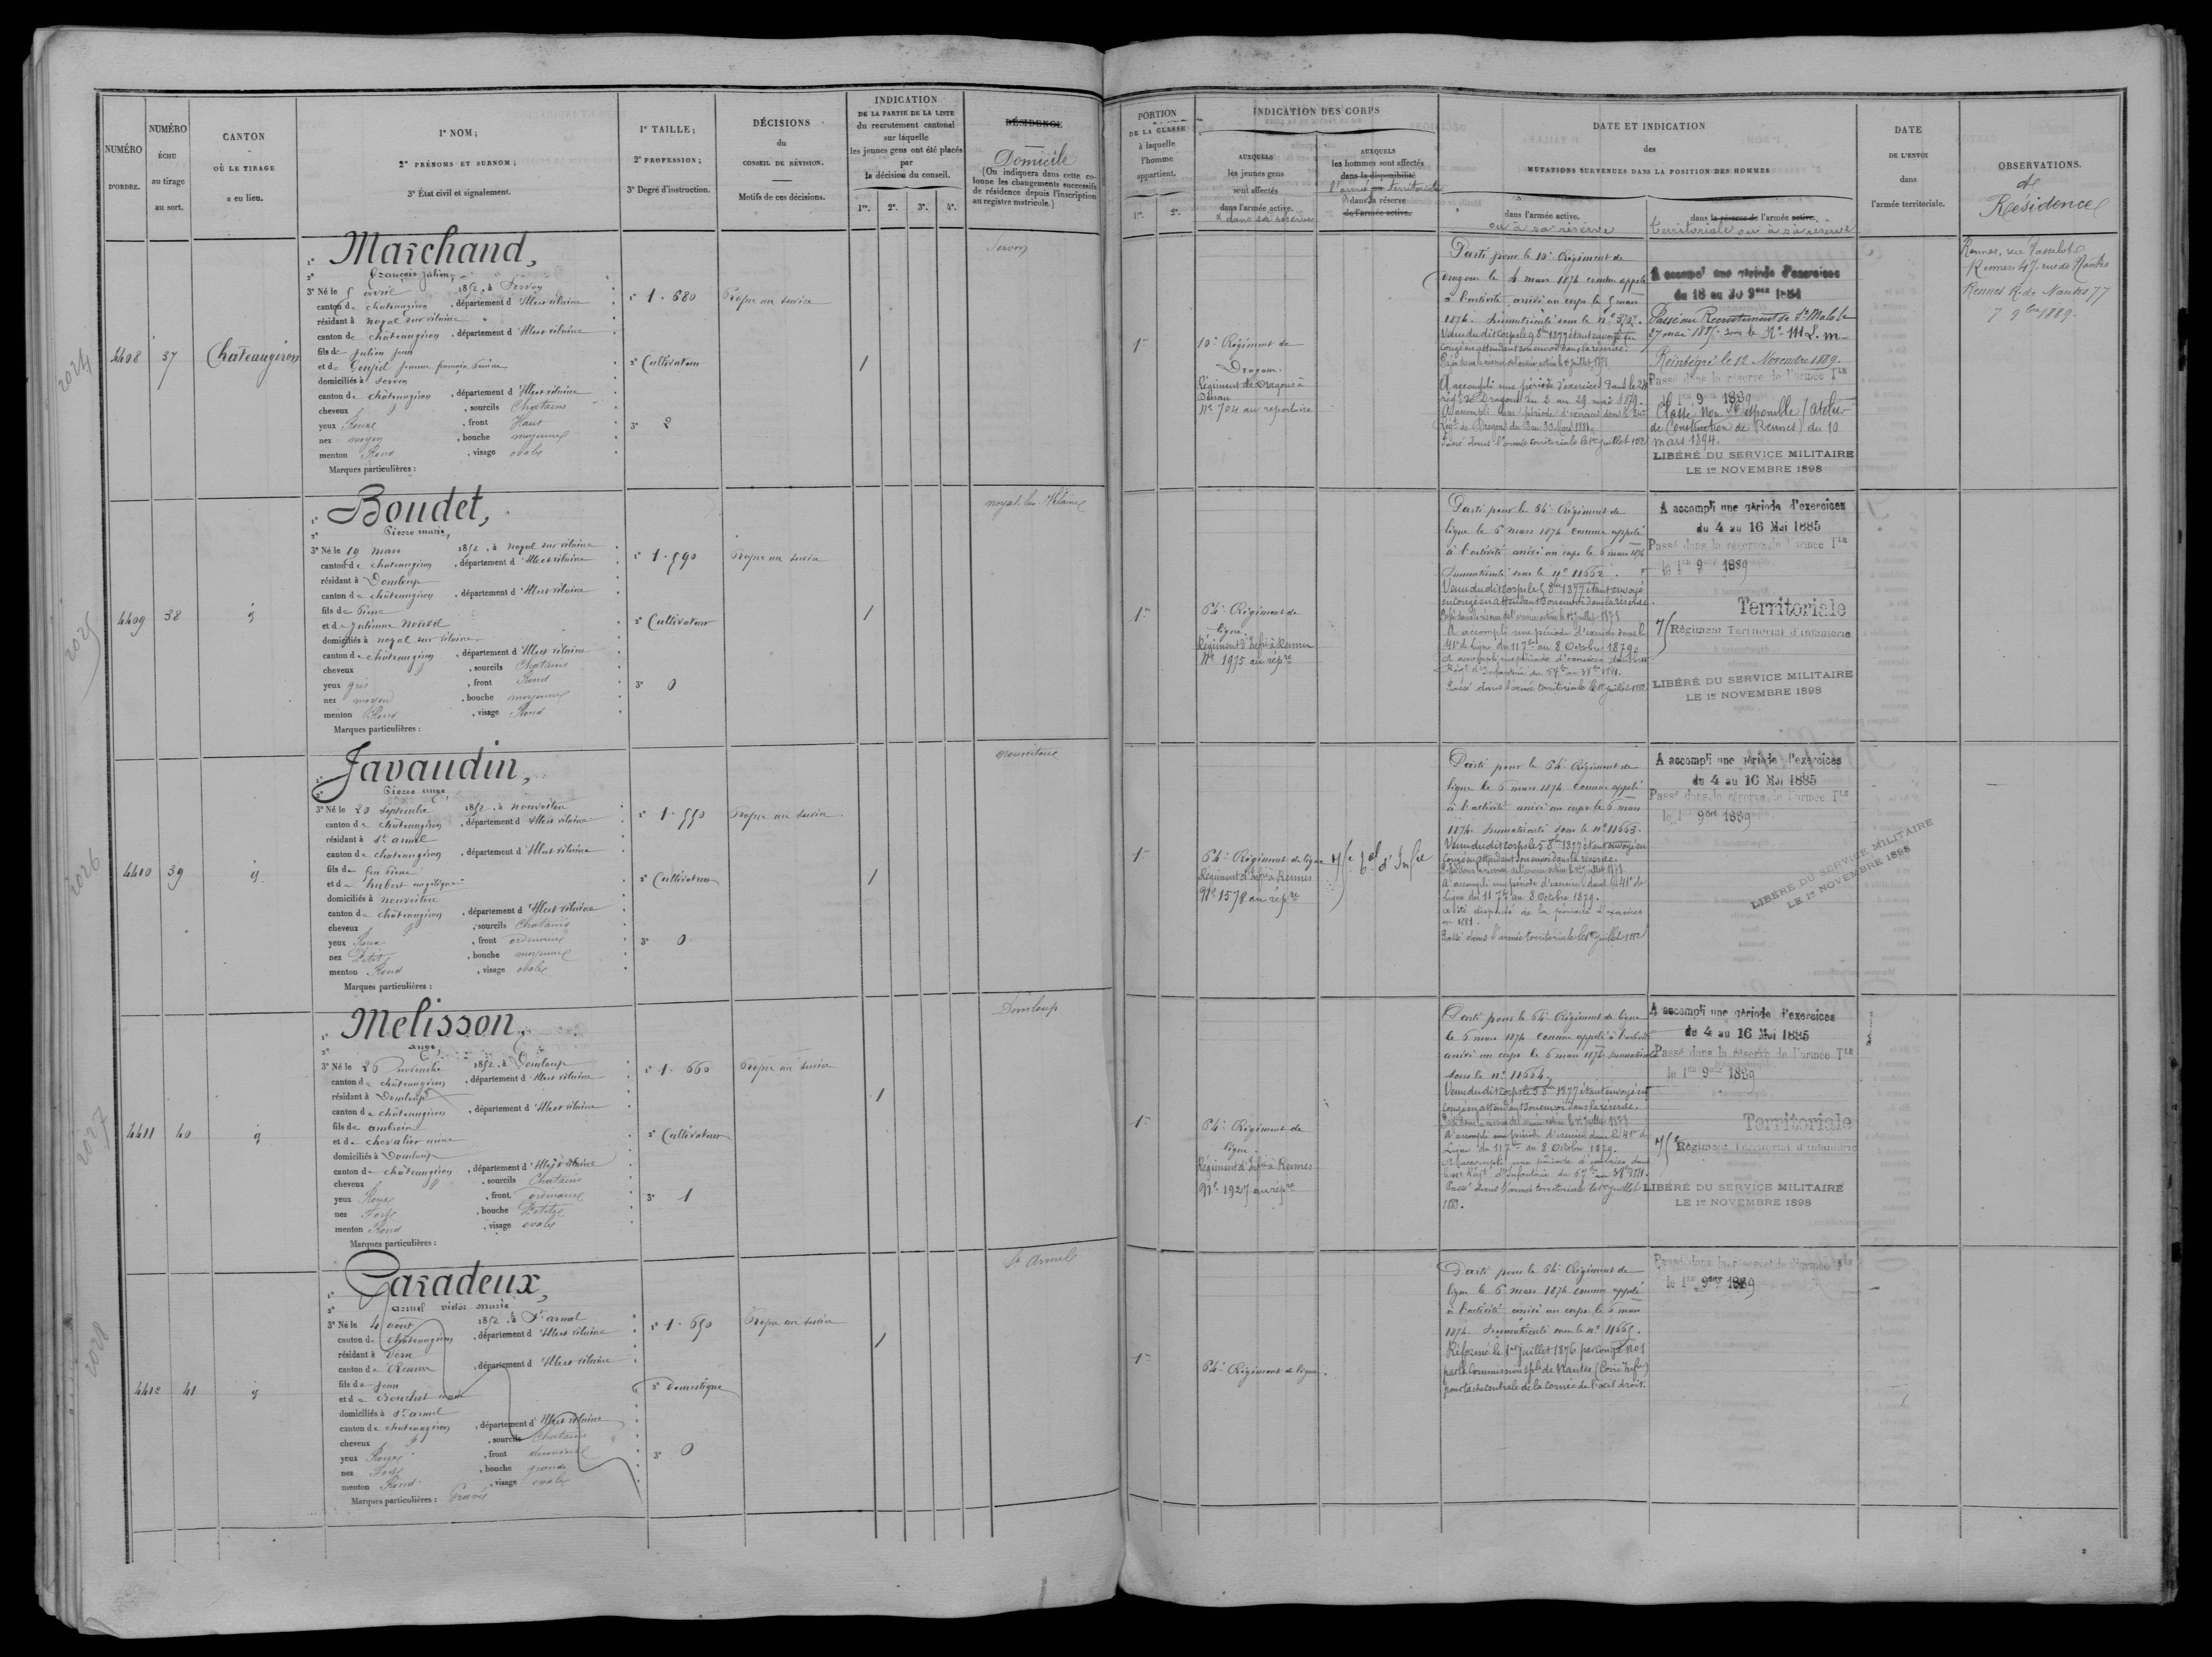 NUMÉRO
D'ORDRE.
NUMÉRO
ÉCHU
au tirage
au sort.
CANTON
OÙ LE TIRAGE
a eu lieu.
1° NOM;
2° PRÉNOMS ET SURNOM;
3° État civil et signalement.
1° TAILLE;
2° PROFESSION;
3° Degré d'instruction.
DÉCISIONS
du
CONSEIL DE RÉVISION.
Motifs de ces décisions.
INDICATION
DE LA PARTIE DE LA LISTE
du recrutement cantonal
sur laquelle
les jeunes gens ont été placés
par
la décision du conseil.
1re. 2e. 3e. 4e.
RÉSIDENCE
Domicile
(On indiquera dans cette co-
lonne les changements successifs
de résidence depuis l'inscription
au registre matricule.)
2024
4408
37
Chateaugiron
1° Marchand,
2° François Julien,
3° Né le 5 avril 1852, à Servon
canton de chateaugiron, département d'Illeet vilaine
résidant à noyal sur vilaine
canton de chateaugiron, département d'Illeet vilaine
fils de Julien
et de Goupil
domiciliés à servon
canton de châteaugiron, département d'Illeet vilaine
cheveux, sourcils Chatains
yeux Roux, front Haut
nez moyen, bouche moyenne
menton Rond, visage ovale
Marques particulières :
1° 1.680
2° Cultivateur
3° 2
Propre au service
1
Servon
2025
4409
38
1° Boudet,
2° Pierre marie,
3° Né le 19 mars 1852, à noyal sur vilaine
canton de chateaugiron, département d'Illeet vilaine
résidant à Domloup
canton de chateaugiron, département d'Illeet vilaine
fils de Pierre
et de Julienne
domiciliés à noyal sur vilaine
canton de châteaugiron, département d'Illeet vilaine
cheveux, sourcils Chatains
yeux gris, front Rond
nez moyen, bouche moyenne
menton Rond, visage Rond
Marques particulières :
1° 1.590
2° Cultivateur
3° 0
Propre au service
1
noyal sur Vilaine
2026
4410
39
1° Javaudin,
2° Pierre ange,
3° Né le 20 septembre 1852, à nouvoitou
canton de châteaugiron, département d'Illeet vilaine
résidant à St armel
canton de chateaugiron, département d'Illeet vilaine
fils de feu Pierre
et de hubert angélique
domiciliés à nouvoitou
canton de châteaugiron, département d'Illeet vilaine
cheveux, sourcils Chatains
yeux Roux, front ordinaire
nez Petit, bouche moyenne
menton Rond, visage ovale
Marques particulières :
1° 1.550
2° Cultivateur
3° 0
Propre au service
1
nouvoitou
2027
4411
40
1° Melisson,
2° ange,
3° Né le 26 novembre 1852, à Domloup
canton de châteaugiron, département d'Illeet vilaine
résidant à Domloup
canton de châteaugiron, département d'Illeet vilaine
fils de ambroise
et de chevalier
domiciliés à Domloup
canton de châteaugiron, département d'Illeet vilaine
cheveux, sourcils Chatains
yeux Roux, front ordinaire
nez Fort, bouche Petite
menton Rond, visage ovale
Marques particulières :
1° 1.660
2° Cultivateur
3° 1
Propre au service
1
Domloup
2028
4412
41
1° Caradeux,
2° armel victor marie
3° Né le 4 août 1852, à St armel
canton de Châteaugiron, département d'Illeet vilaine
résidant à Vern
canton de Rennes, département d'Illeet vilaine
fils de Jean
et de Bouchet
domiciliés à St armel
canton de chateaugiron, département d'Illeet vilaine
cheveux, sourcils Chatains
yeux Roux, front
nez Fort, bouche grande
menton Rond, visage ovale
Marques particulières : Gravé
1° 1.650
2° Domestique
3° 0
Propre au service
1
St Armel
PORTION
DE LA CLASSE
à laquelle
l'homme
appartient.
1re. 2e.
INDICATION DES CORPS
AUXQUELS
les jeunes gens
sont affectés
dans l'armée active.
& dans sa réserve
AUXQUELS
les hommes sont affectés
dans la disponibilité
l'armée ou territoriale
dans sa réserve
de l'armée active.
DATE ET INDICATION
des
MUTATIONS SURVENUES DANS LA POSITION DES HOMMES
dans l'armée active.
ou à sa réserve
dans la réserve de l'armée active.
territoriale ou à sa réserve
DATE
DE L'ENVOI
dans
l'armée territoriale.
OBSERVATIONS.
de
Residence
1re
10e Régiment de
Dragons.
Régiment de Dragons à
Dinan
No 704 au répertoire
Parti pour le 10e Régiment de
Dragons le 4 mars 1874 comme appelé
à l'activité, arrivé au corps le 5 mars
1874. Immatriculé sous le no 3727.
Venu du dit corps le 5 8bre 1877 étant envoyé en
congé en attendant son envoi dans la réserve.
A accompli une période d'exercices dans le 24e
régt de Dragons du 2 au 29 mai 1879.
A accompli une période d'exercices dans le 24e
Régt de Dragons du 3 au 30 Mai 1881.
Passé dans l'armée territoriale le 1er Juillet 1882
A accompli une période d'exercices
du 18 au 30 9bre 1884
Passé au Recrutement de St Malo le
27 mai 1887. sous le No
Réintégré le 12 Novembre 1889.
Passé dans la réserve de l'armée Tle
le 1er 9bre 1889
Classé Non Disponible (atelier
de Construction de Rennes) du 10
mars 1894.
LIBÉRÉ DU SERVICE MILITAIRE
LE 1er NOVEMBRE 1898
Rennes, rue Vasselot
Rennes 47, rue de Nantes
Rennes R. de Nantes 77
7 9bre 1889.
1re
64e Régiment de
ligne.
Régiment d'Infie à Rennes
No 1975 au répre
Parti pour le 64e Régiment de
ligne le 6 mars 1874 comme appelé
à l'activité arrivé au corps le 6 mars 1874
Immatriculé sous le no 11662.
Venu du dit corps le 5 8bre 1877 étant envoyé
en congé en attendant son envoi dans la réserve.
A accompli une période d'exercices dans le
41e de ligne du 11 7bre au 8 Octobre 1879.
Passé dans l'armée territoriale le 1er Juillet 1882
A accompli une période d'exercices
du 4 au 16 Mai 1885
Passé dans la réserve de l'armée Tle
le 1er 9bre 1889
Territoriale
75e Régiment Territorial d'infanterie
LIBÉRÉ DU SERVICE MILITAIRE
LE 1er NOVEMBRE 1898
1re
64e Régiment de ligne
Régiment d'Infie à Rennes
No 1578 au répre
75e Tal d'Infie
Parti pour le 64e Régiment de
ligne le 6 mars 1874 comme appelé
à l'activité arrivé au corps le 6 mars
1874. Immatriculé sous le no 11663.
Venu du dit corps le 5 8bre 1877 étant envoyé en
congé en attendant son envoi dans la réserve.
A accompli une période d'exercices dans le 41e de
Ligne du 11 7bre au 8 Octobre 1879.
a été dispensé de la période d'exercices
en 1881.
Passé dans l'armée territoriale le 1er Juillet 1882
A accompli une période d'exercices
du 4 au 16 Mai 1885
Passé dans la réserve de l'armée Tle
le 1er 9bre 1889
LIBÉRÉ DU SERVICE MILITAIRE
LE 1er NOVEMBRE 1898
1re
64e Régiment de
ligne.
Régiment d'Infie à Rennes
No 1927 au répre
Parti pour le 64e Régiment de ligne
le 6 mars 1874 comme appelé à l'activité
arrivé au corps le 6 mars 1874 Immatriculé
sous le no 11664.
Venu du dit corps le 5 8bre 1877 étant envoyé en
congé en attendant son envoi dans la réserve.
A accompli une période d'exercices dans le 41e de
Ligne du 11 7bre au 8 Octobre 1879.
Passé dans l'armée territoriale le 1er Juillet
A accompli une période d'exercices
du 4 au 16 Mai 1885
Passé dans la réserve de l'armée Tle
le 1er 9bre 1889
Territoriale
75e Régiment Territorial d'infanterie
LIBÉRÉ DU SERVICE MILITAIRE
LE 1er NOVEMBRE 1898
1re
64e Régiment de ligne.
Parti pour le 64e Régiment de
ligne le 6 mars 1874 comme appelé
à l'activité arrivé au corps le 6 mars
1874. Immatriculé sous le no 11665.
Réformé le 1er Juillet 1876 par congé No 1
par la Commission sple de Nantes (Loire Infre)
pour tache centrale de la cornée de l'oeil droit.
Passé dans la réserve de l'armée Tle
le 1er 9bre 1889